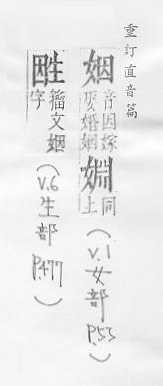 重訂直音篇
姻 音因嫁娶婚姻 婣 同上 (V.1女部P.53)
籒文姻字 (V.6生部P.477)